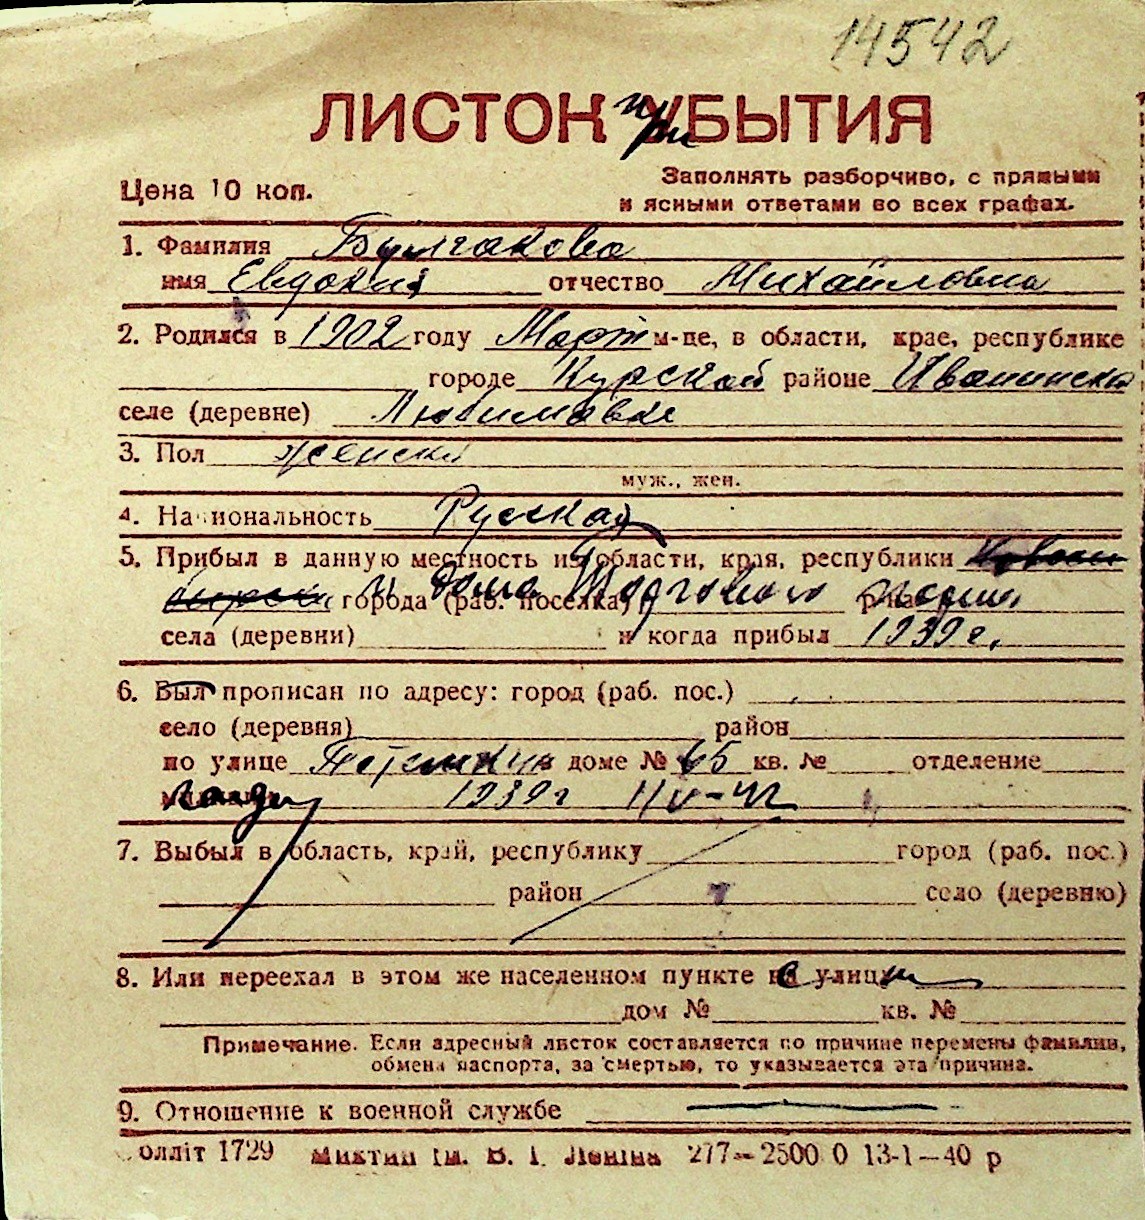 14542
ЛИСТОК при УБЫТИЯ
Цена 10 коп.
Заполнять разборчиво, с прямыми
и ясными ответами во всех графах.
1. Фамилия Булгакова
имя Евдокия отчество Михайловна
2. Родился в 1902 году Март м-це, в области, крае, республике
городе Курской районе Иванински
селе (деревне) Любимовке
3. Пол женски
муж., жен.
4. Национальность Русская
5. Прибыл в данную местность из области, края, республики
города (раб. поселка) дома р-на
села (деревни) и когда прибыл 1939 г.
6. Был прописан по адресу: город (раб. пос.)
село (деревня) район
по улице доме № 65 кв. № отделение
1939 г 11 V-42
7. Выбыл в область, край, республику город (раб. пос.)
район село (деревню)
8. Или переехал в этом же населенном пункте на с улицы
дом № кв. №
Примечание. Если адресный листок составляется по причине перемены фамилии,
обмена паспорта, за смертью, то указывается эта причина.
9. Отношение к военной службе —
олліт 1729 Ім. В. І. Леніна 277—2500 0 13-1—40 р